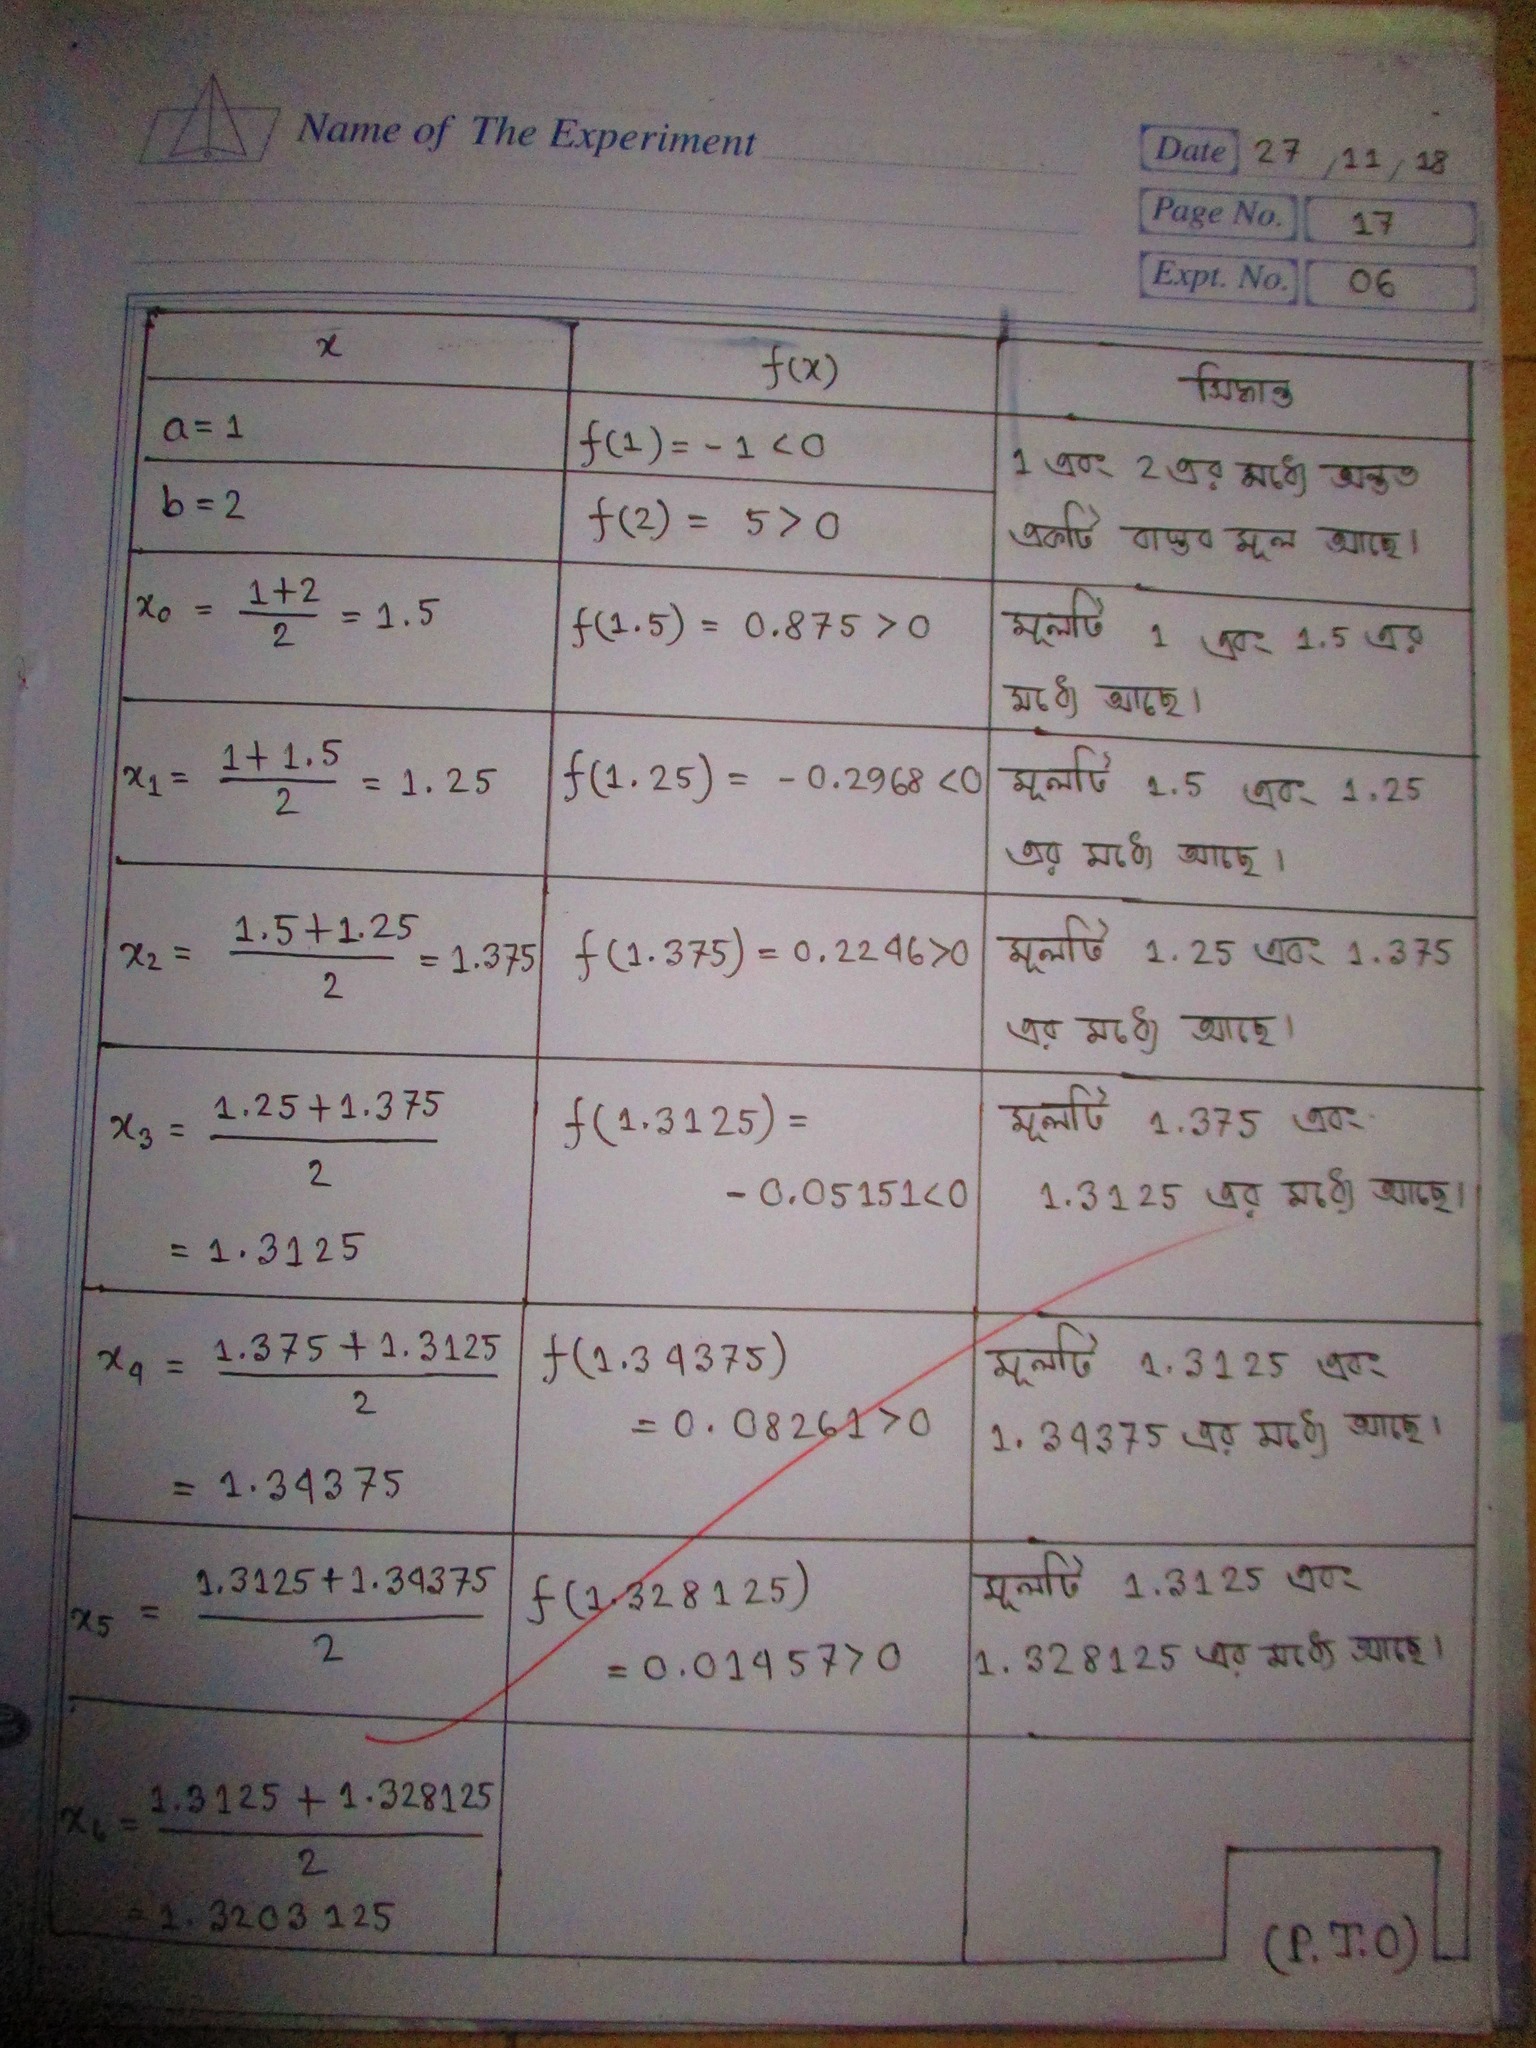 Name of The Experiment
Date 27/11/18
Page No. 17
Expt. No. 06
x
f(x)
সিদ্ধান্ত
a = 1
f(1) = - 1 < 0
1 এবং 2 এর মধ্যে অন্তত
একটি বাস্তব মূল আছে।
b = 2
f(2) = 5 > 0
x₀ = (1+2)/2 = 1.5
f(1.5) = 0.875 > 0
মূলটি 1 এবং 1.5 এর
মধ্যে আছে।
x₁ = (1+1.5)/2 = 1.25
f(1.25) = - 0.2968 < 0
মূলটি 1.5 এবং 1.25
এর মধ্যে আছে।
x₂ = (1.5+1.25)/2 = 1.375
f(1.375) = 0.2246 > 0
মূলটি 1.25 এবং 1.375
এর মধ্যে আছে।
x₃ = (1.25+1.375)/2
= 1.3125
f(1.3125) =
- 0.05151 < 0
মূলটি 1.375 এবং
1.3125 এর মধ্যে আছে।
x₄ = (1.375+1.3125)/2
= 1.34375
f(1.34375)
= 0.08261 > 0
মূলটি 1.3125 এবং
1.34375 এর মধ্যে আছে।
x₅ = (1.3125+1.34375)/2
f(1.328125)
= 0.01457 > 0
মূলটি 1.3125 এবং
1.328125 এর মধ্যে আছে।
x₆ = (1.3125+1.328125)/2
= 1.3203125
(P.T.O)